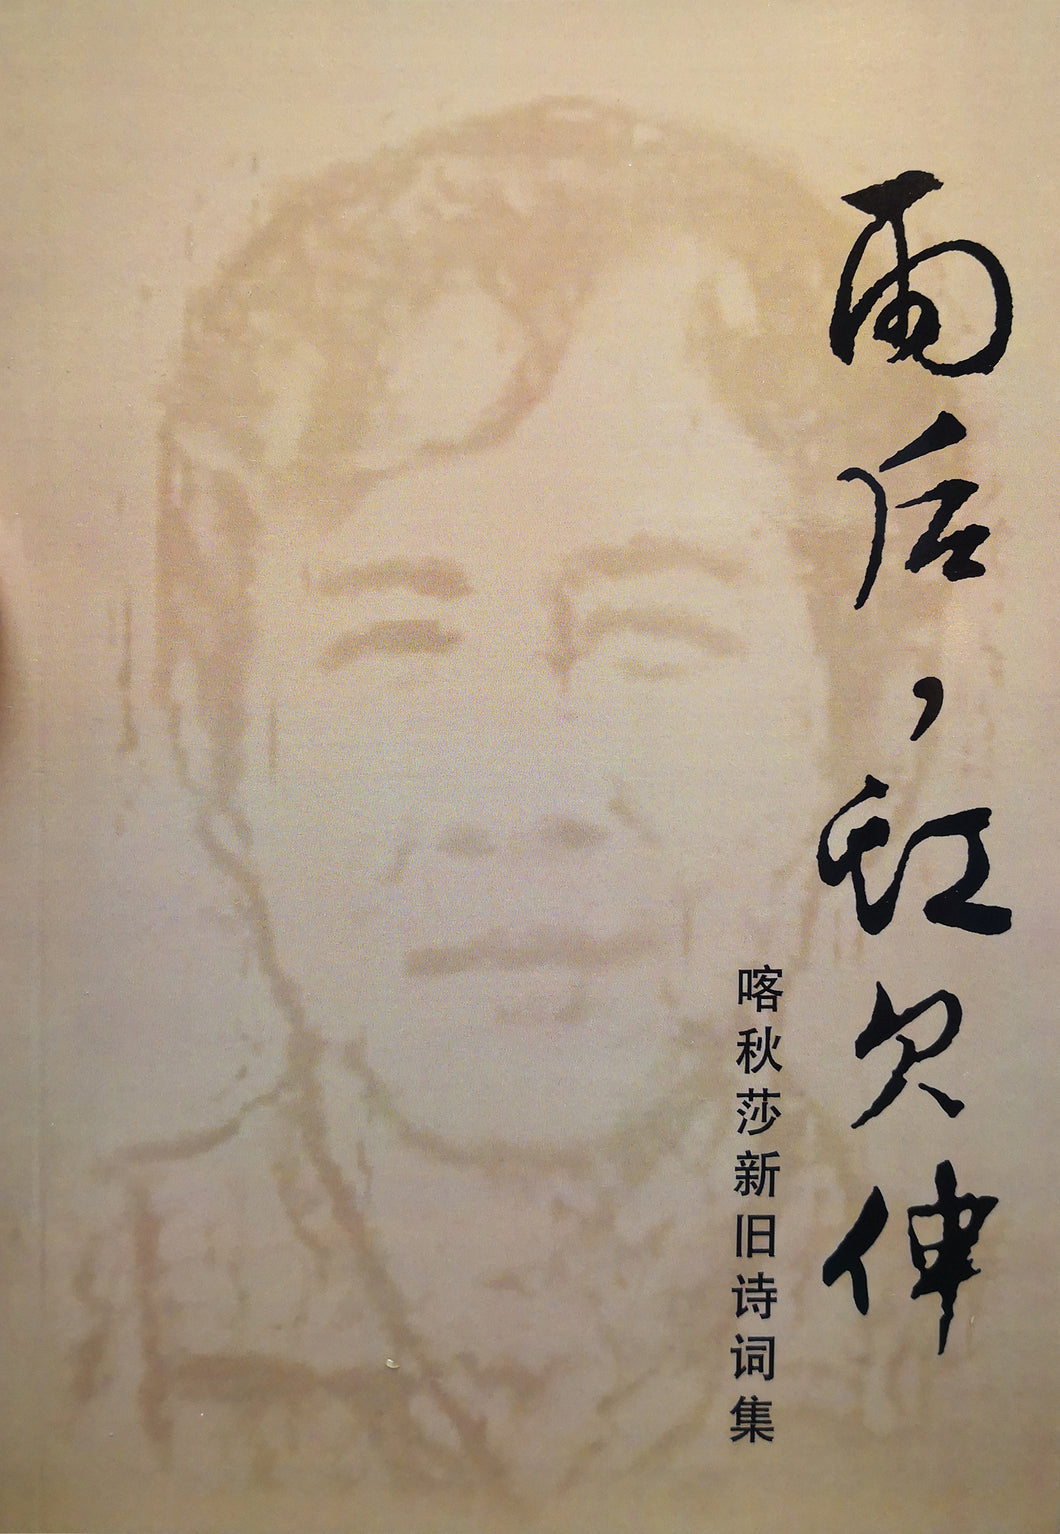 雨后，虹欠伸
喀秋莎新旧诗词集